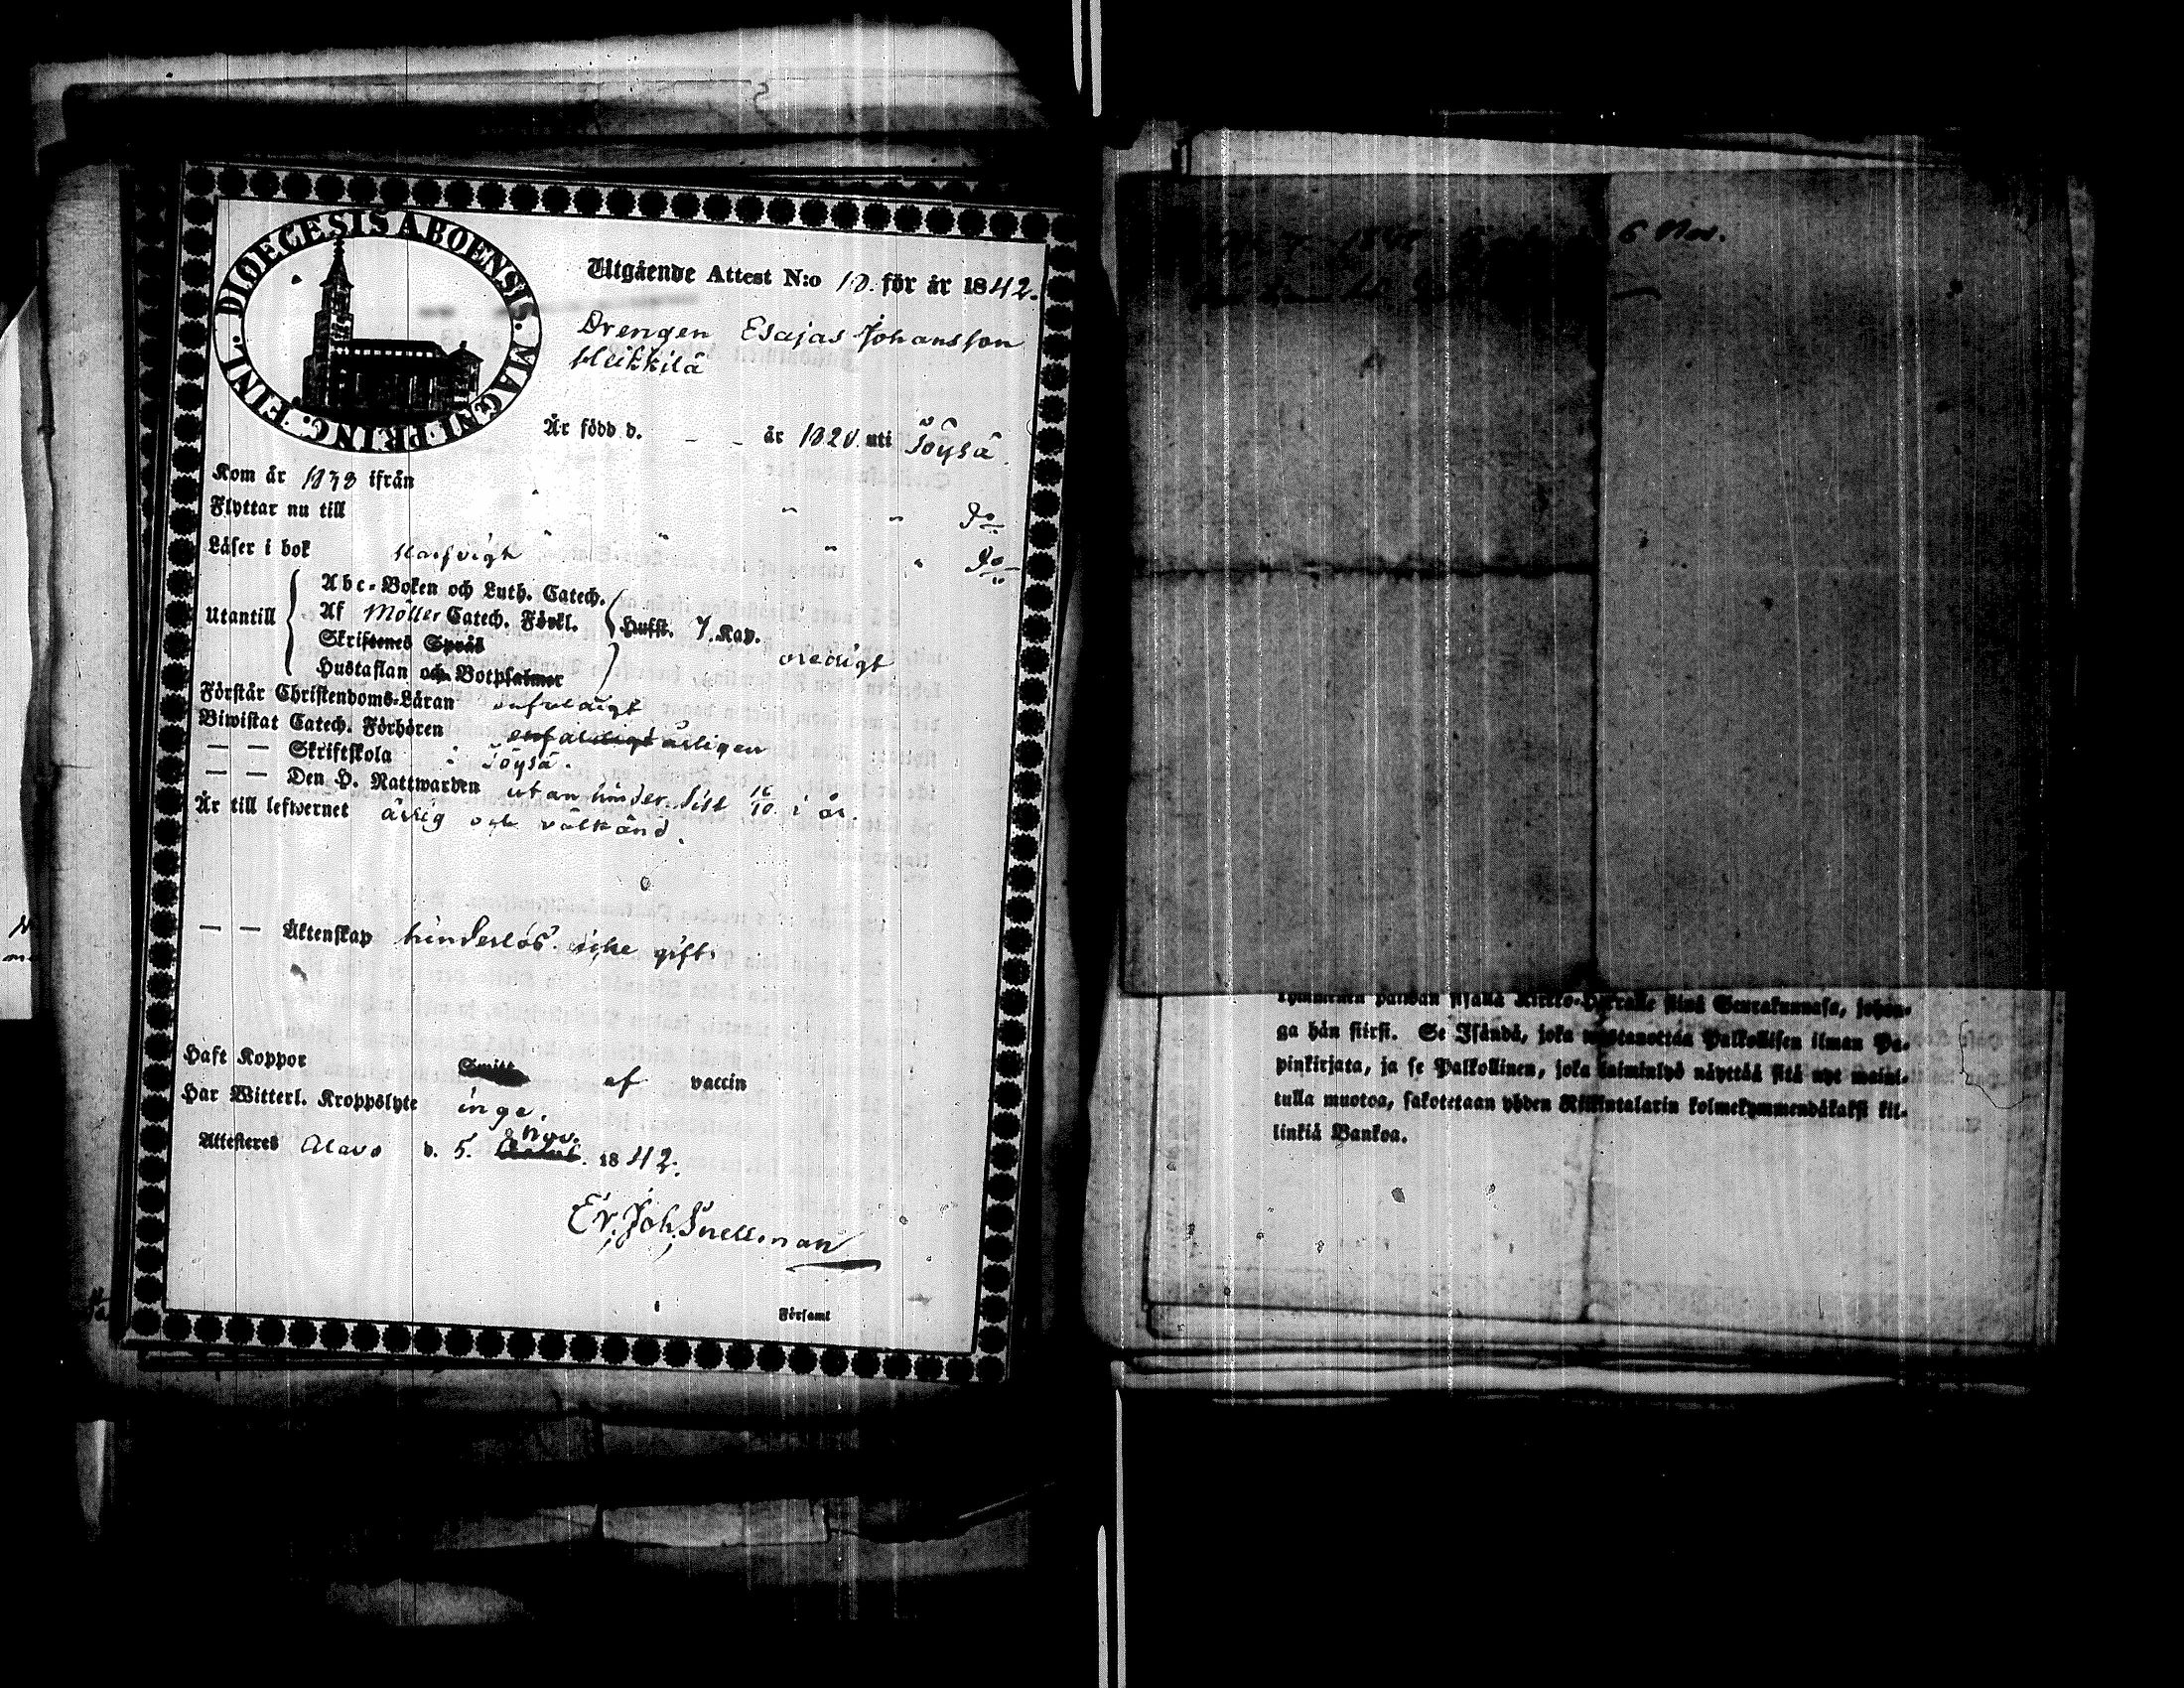 DIOECESIS ABOENSIS. MAGNI PRINC. FINL.
Utgående Attest N:o 10. för år 1842.
Drengen Esajas Johansson
Heikkilä
Är född d. - - år 1820. uti Töysä.
Kom år 1838 ifrån " " Do
Flyttar nu till " " " " Do
Läser i bok
Utantill
Abc-Boken och Luth. Catech.
Af Möller Catech. Förkl.
Skriftenes Språk
Hustaflan och Botpsalmer
Husst. 7. Kap.
oredigt
Förstår Christendoms-Läran enfaldigt
Biwistat Catech. Förhören enfaldigt årligen
— — Skriftskola i Töysä.
— — Den H. Nattwarden utan hinder sist 16/10 i år.
Är till lefwernet ärlig och välkänd.
— — Äktenskap hinderlös. icke gift.
Haft Koppor Smitt af vaccin
Har Witterl. Kroppslyte inga.
Attesteres Alavo d. 5. Nov. 1842.
Er. Joh. Snellman
Församl
6 Nov.
kymmenen päiwän sisällä Kirkko-Herralle siinä Seurakunnasa, johon-
ga hän siirsi. Se Isändä, joka wastanottaa Palkollisen ilman Pa-
pinkirjata, ja se Palkollinen, joka laiminlyö näyttää sitä nyt maini-
tulla muotoa, sakotetaan yhden Riikintalarin kolmekymmendäkaksi kil-
linkiä Bankoa.